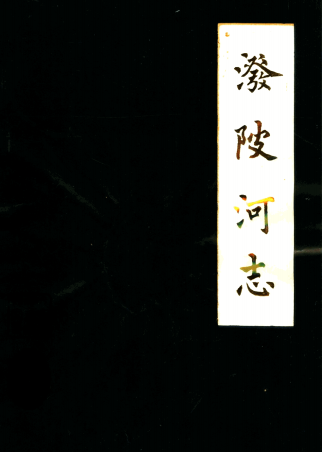 潑陂河志